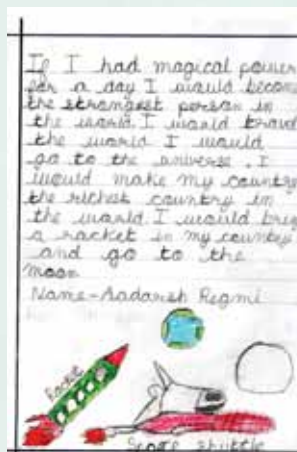 If I had magical power
for a day I would become
the strongest person in
the world. I would travel
the world I would
go to the universe. I
would make my country
the richest country in
the world. I would
a racket in my country
and go to the
moon
Name-Aadarsh Regmi
Rocket
Space shuttle